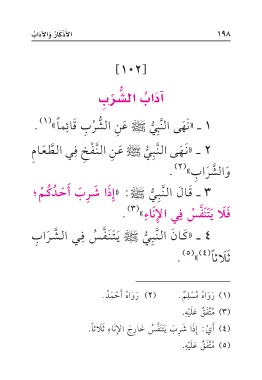 ١٩٨ الأَذْكَارُ وَالآدَابُ
[١٠٢]
آدَابُ الشُّرْبِ
١ ـ «نَهَى النَّبِيُّ ﷺ عَنِ الشُّرْبِ قَائِماً»(١).
٢ ـ «نَهَى النَّبِيُّ ﷺ عَنِ النَّفْخِ فِي الطَّعَامِ
وَالشَّرَابِ»(٢).
٣ ـ قَالَ النَّبِيُّ ﷺ: «إِذَا شَرِبَ أَحَدُكُمْ؛
فَلَا يَتَنَفَّسْ فِي الإِنَاءِ»(٣).
٤ ـ «كَانَ النَّبِيُّ ﷺ يَتَنَفَّسُ فِي الشَّرَابِ
ثَلَاثاً»(٤)(٥).
(١) رَوَاهُ مُسْلِمٌ. (٢) رَوَاهُ أَحْمَدُ.
(٣) مُتَّفَقٌ عَلَيْهِ.
(٤) أَيْ: إِذَا شَرِبَ يَتَنَفَّسُ خَارِجَ الإِنَاءِ ثَلَاثاً.
(٥) مُتَّفَقٌ عَلَيْهِ.